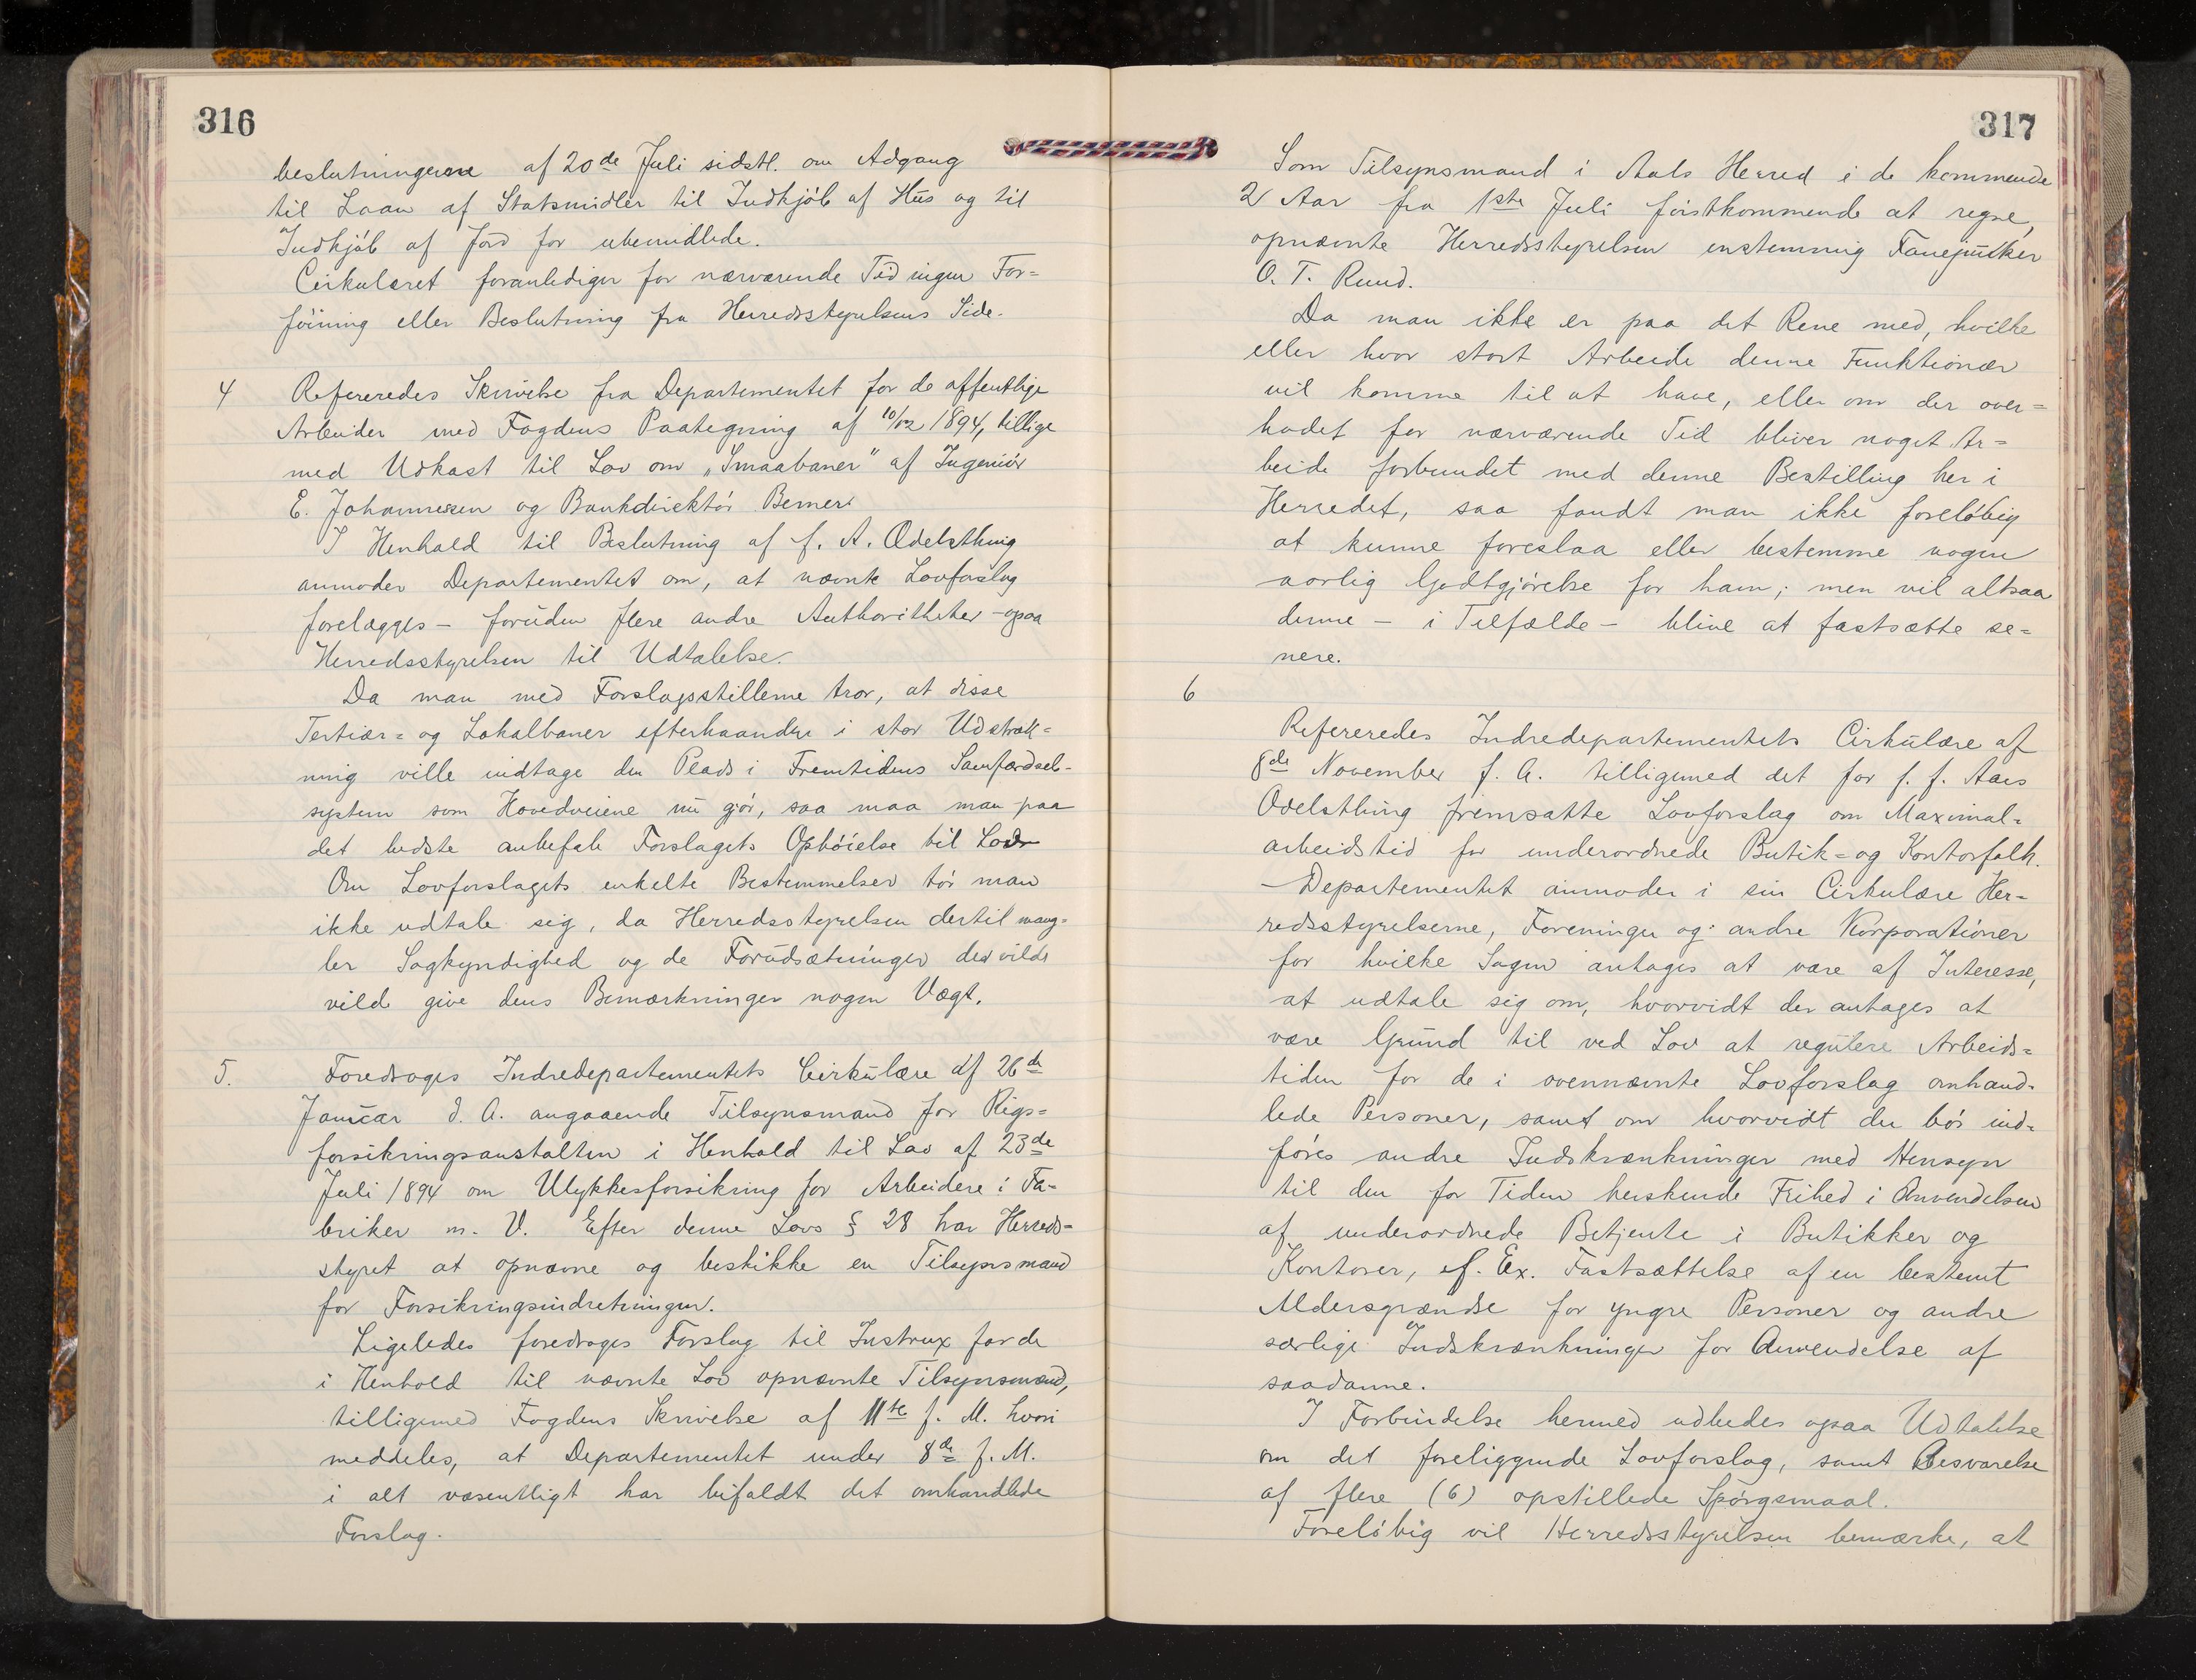 316
beslutningerne af 20de Juli sidstl. om Adgang
til Laan af Statsmidler til Indkjöb af Hus og til
Indkjöb af Jord for ubemidlede.
Cirkulæret foranlediger for nærværende Tid ingen For=
föining eller Beslutning fra Herredsstyrelsens Side.
4 Refereredes Skrivelse fra Departementet for de offentlige
Arbeider med Fogdens Paategning af 10/12 1894, tillige
med Udkast til Lov om „Smaabaner" af Ingeniör
E. Johannesen og Bankdirektör Berner.
I Henhold til Beslutning af f. A. Odelsthing
anmoder Departementet om, at nævnte Lovforslag
forelægges – foruden flere andre Authoritheter – ogsaa
Herredsstyrelsen til Udtalelse.
Da man med Forslagsstillerne tror, at disse
Tertiær= og Lokalbaner efterhaanden i stor Udstræk=
ning ville indtage den Plads i Fremtidens Samfærdsel-
system som Hovedveiene nu gjör, saa maa man paa
det bedste anbefale Forslagets Ophöielse til Lov
Om Lovforslagets enkelte Bestemmelser tör man
ikke udtale sig, da Herredsstyrelsen dertil mang=
ler Sagkyndighed og de Forudsætninger der vilde
vilde give dens Bemærkninger nogen Vægt.
5. Foredroges Indredepartementets Cirkulære af 26de
Januar d. A. angaaende Tilsynsmand for Rigs=
forsikringsanstalten i Henhold til Lov af 23de
Juli 1894 om Ulykkesforsikring for Arbeidere i Fa-
briker m. V. Efter denne Lovs § 28 har Herreds-
styret at opnævne og bestikke en Tilsynsmand
for Forsikringsindretningen.
Ligeledes foredroges Forslag til Instrux for de
i Henhold til nævnte Lov opnævnte Tilsynsmænd,
tilligemed Fogdens Skrivelse af 11te f. M. hvori
meddeles, at Departementet under 8de f. M.
i alt væsentligt har bifaldt det omhandlede
Forslag.
317
Som Tilsynsmand i Aals Herred i de kommende
2 Aar fra 1ste Juli förstkommende at regne,
opnævnte Herredsstyrelsen enstemmig Fanejunker
O. T. Ruud.
Da man ikke er paa det Rene med, hvilke
eller hvor stort Arbeide denne Funktionær
vil komme til at have, eller om der over=
hodet for nærværende Tid bliver noget Ar=
beide forbundet med denne Bestilling her i
Herredet, saa fandt man ikke forelöbig
at kunne foreslaa eller bestemme nogen
aarlig Godtgjörelse for ham; men vil altsaa
denne – i Tilfælde – blive at fastsætte se=
nere.
6
Refereredes Indredepartementets Cirkulære af
8de November f. A. tilligemed det for f. f. Aars
Odelsthing fremsatte Lovforslag om Maximal-
arbeidstid for underordnede Butik= og Kontorfolk.
– Departementet anmoder i sin Cirkulære Her-
redsstyrelserne, Foreninger og andre Korporationer
for hvilke Sagen antages at være af Interesse,
at udtale sig om, hvorvidt der antages at
være Grund til ved Lov at regulere Arbeids=
tiden for de i ovennævnte Lovforslag omhand-
lede Personer, samt om hvorvidt der bör ind-
föres andre Indskrænkninger med Hensyn
til den for Tiden herskende Frihed i Anvendelsen
af underordnede Betjente i Butikker og
Kontorer, f. Ex. Fastsættelse af en bestemt
Aldersgrændse for yngre Personer og andre
særlige Indskrænkninger for Anvendelse af
saadanne.
I Forbindelse hermed udbedes ogsaa Udtalelse
om det foreliggende Lovforslag, samt Besvarelse
af flere (6) opstillede Spörgsmaal.
Forelöbig vil Herredsstyrelsen bemærke, at